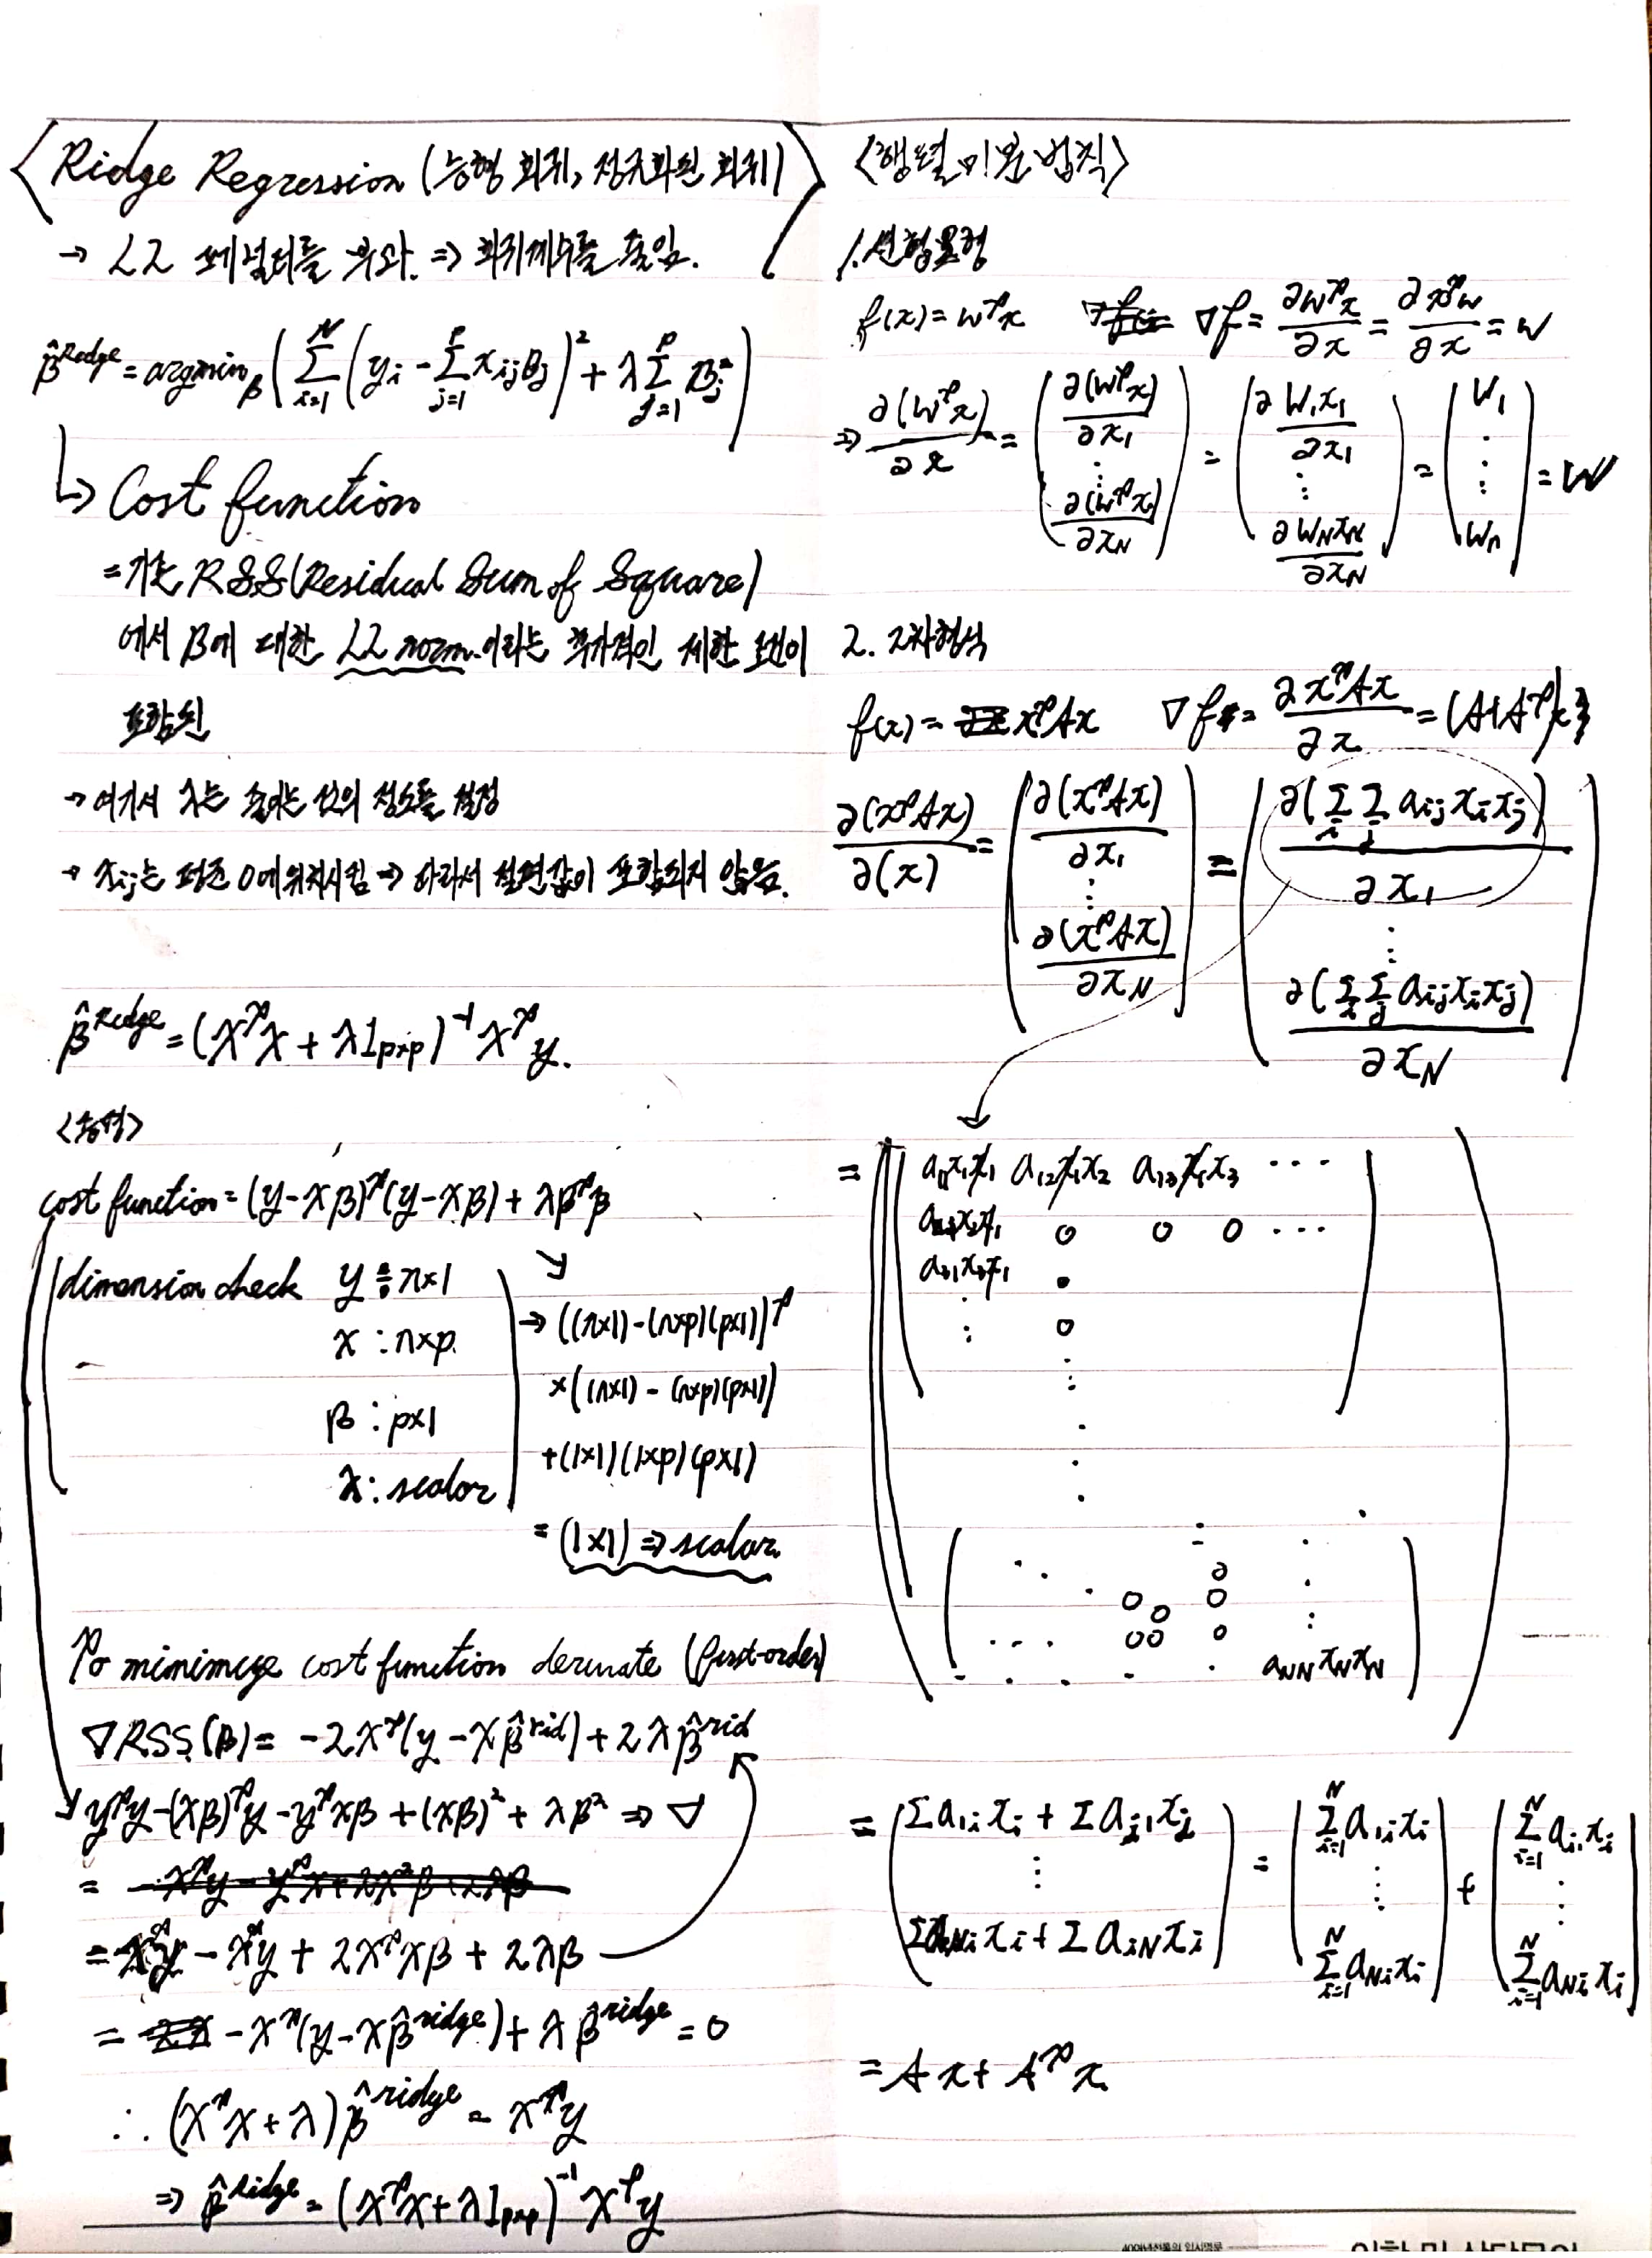 <Ridge Regression (능형 회귀, 정규화된 회귀)>
→ L2 페널티를 부과. ⇒ 회귀계수를 줄임.
β̂^Ridge = argmin_β ( Σ_{i=1}^{N} ( y_i - Σ_{j=1}^{p} x_ij β_j )² + λ Σ_{j=1}^{p} β_j² )
↳ Cost function
= 기존 RSS (Residual Sum of Square)
에서 β에 대한 L2 norm 이라는 추가적인 제한 조건이
포함된
→ 여기서 λ는 줄이는 것의 정도를 설정
→ x_ij는 평균 0에 위치시킴 → 따라서 절편값이 포함되지 않음.
β̂^Ridge = (X^T X + λ I_{p×p})^{-1} X^T y.
<증명>
cost function = (y - Xβ)^T (y - Xβ) + λβ^T β
dimension check y : n×1
X : n×p.
β : p×1
λ : scalar
→ ((n×1) - (n×p)(p×1))^T
×((n×1) - (n×p)(p×1))
+ (1×1)(1×p)(p×1)
= (1×1) ⇒ scalar.
To mimimize cost function derivate (first-order)
∇RSS(β) = -2X^T (y - Xβ̂^rid) + 2λβ̂^rid
y^T y - (Xβ)^T y - y^T Xβ + (Xβ)² + λβ² ⇒ ∇
= -X^T y - y^T X + 2X²β + 2λβ
= -X^T y - X^T y + 2X^T Xβ + 2λβ
= -X^T (y - Xβ̂^ridge) + λβ̂^ridge = 0
∴ (X^T X + λ) β̂^ridge = X^T y
⇒ β̂^ridge = (X^T X + λ I_{p×p})^{-1} X^T y
<행렬 미분 법칙>
1. 선형모형
f(x) = w^T x ∇f = ∂w^T x / ∂x = ∂x^T w / ∂x = w
⇒ ∂(w^T x) / ∂x = ( ∂(w^T x)/∂x_1 ⋮ ∂(w^T x)/∂x_N ) = ( ∂w_1x_1/∂x_1 ⋮ ∂w_Nx_N/∂x_N ) = ( w_1 ⋮ w_n ) = W
2. 2차형식
f(x) = x^T A x ∇f = ∂x^T A x / ∂x = (A+A^T)x
∂(x^T A x) / ∂(x) = ( ∂(x^T A x)/∂x_1 ⋮ ∂(x^T A x)/∂x_N ) = ( ∂(Σ_i Σ_j a_ij x_i x_j)/∂x_1 ⋮ ∂(Σ_i Σ_j a_ij x_i x_j)/∂x_N )
= a_11x_1x_1 a_12x_1x_2 a_13x_1x_3 ⋯
a_21x_2x_1 0 0 0 ⋯
a_31x_3x_1
0
0
0 0
0
00 0
a_NN x_N x_N
= ( Σa_1i x_i + Σa_j1 x_j ⋮ Σa_Ni x_i + Σa_iN x_i ) = ( Σ_{i=1}^{N} a_1i x_i ⋮ Σ_{i=1}^{N} a_Ni x_i ) + ( Σ_{i=1}^{N} a_i1 x_i ⋮ Σ_{i=1}^{N} a_Ni x_i )
= A x + A^T x